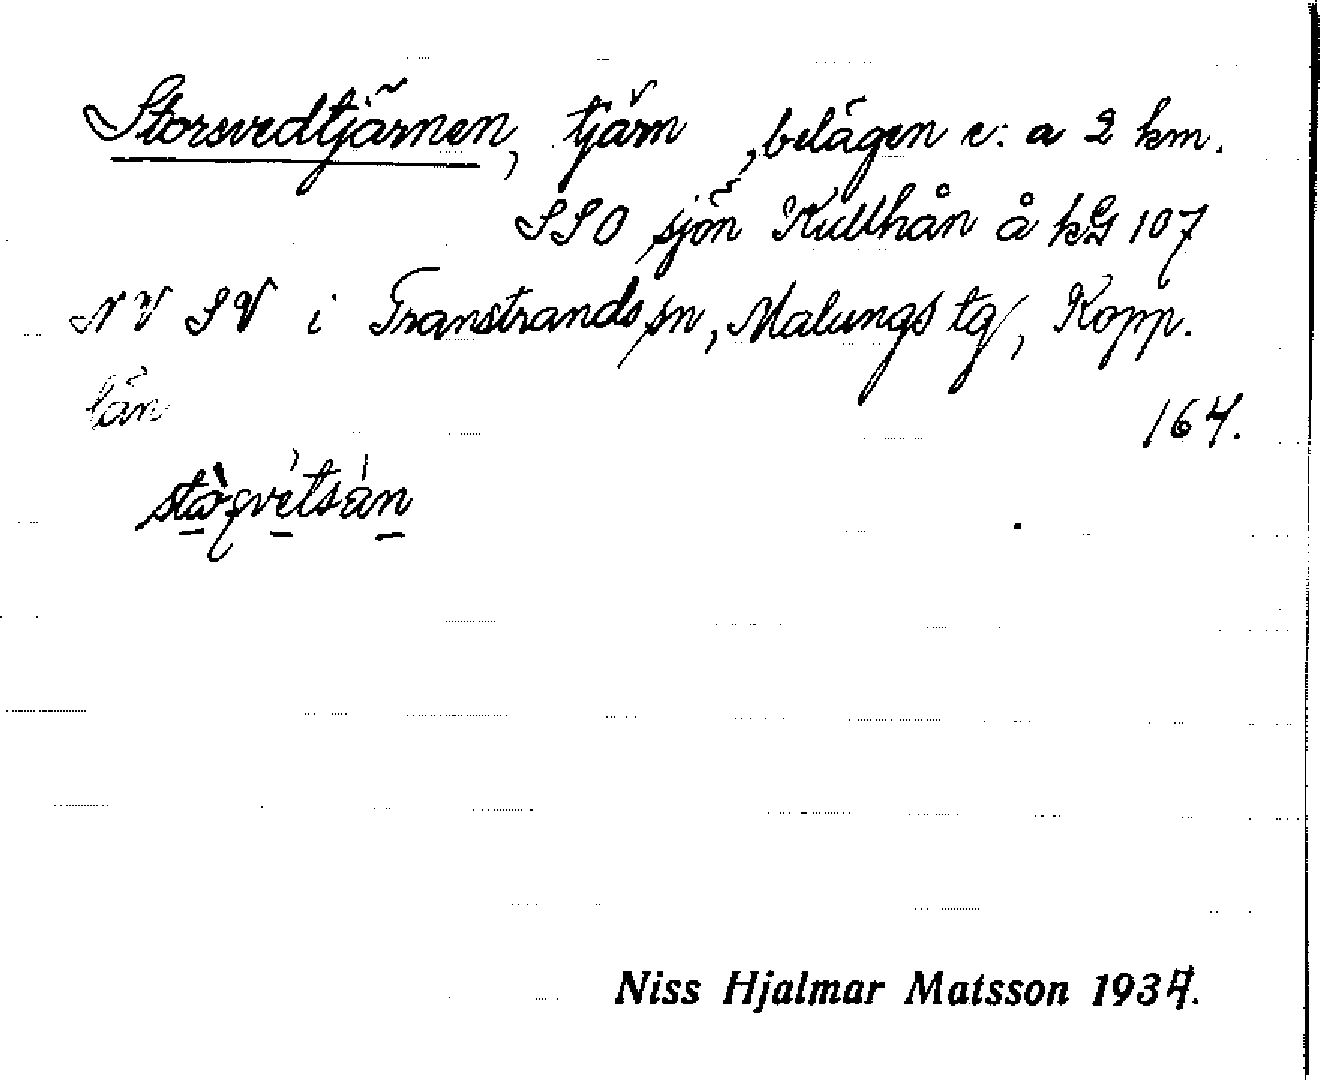 Storsvedtjärnen, tjärn, belägen c:a 2 km.
SSO sjön Kullhån å kG 107
NV SV i Transtrands sn, Malungs tg, Kopp.
län
164.
Niss Hjalmar Matsson 1934.